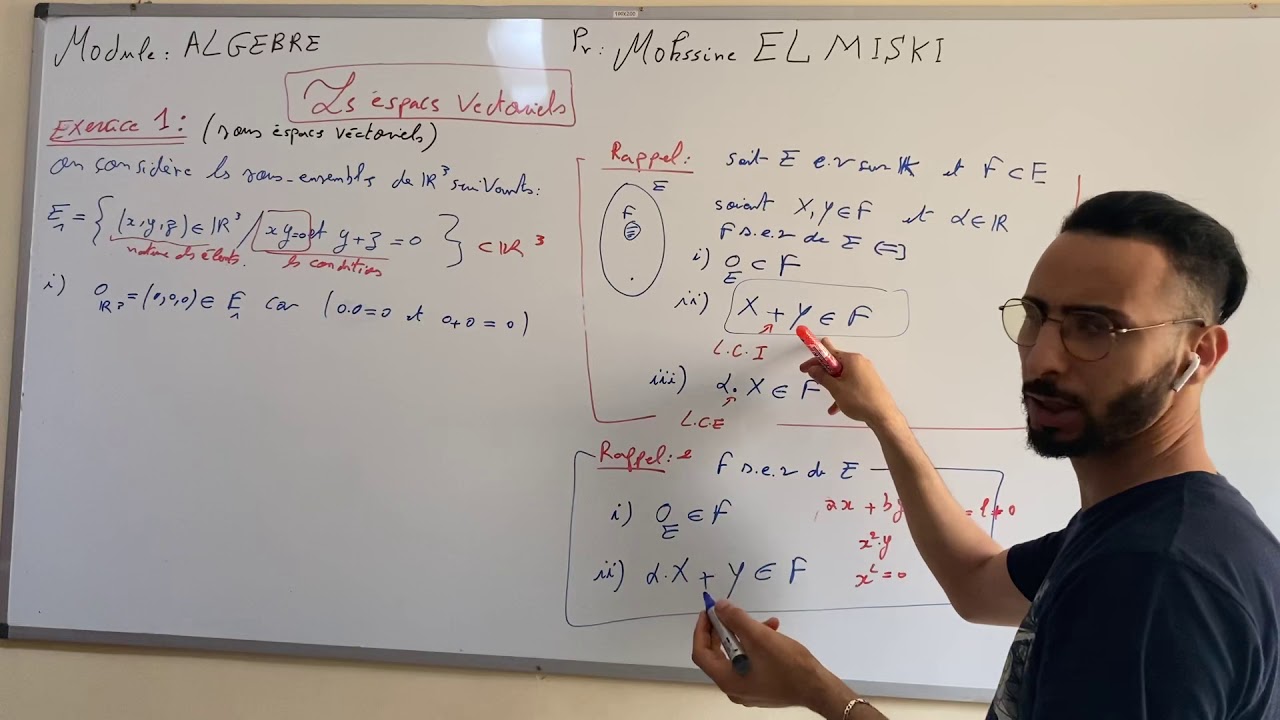 Module: ALGEBRE
Pr: Mohssine EL MISKI
Ls éspacs Vectoriels
Exercice 1: (sous éspacs véctoriels)
on considère ls sous-ensembls de IR³ suivants:
E₁ = { (x,y,z) ∈ IR³ / xy=0 et y+z=0 } ⊂ IR³
ls conditions
i) 0_IR³ = (0,0,0) ∈ E₁ car (0.0=0 et 0+0=0)
Rappel: soit E e.v sur IK et F ⊂ E
E
F
soient X,Y ∈ F et α ∈ IR
F s.e.v de E (=)
i) 0_E ⊂ F
ii) X + Y ∈ F
L.C.I
iii) α. X ∈ F
L.C.E
Rappel: F s.e.v de E
i) 0_E ∈ F
ii) α.X + Y ∈ F
x².y
x²=0